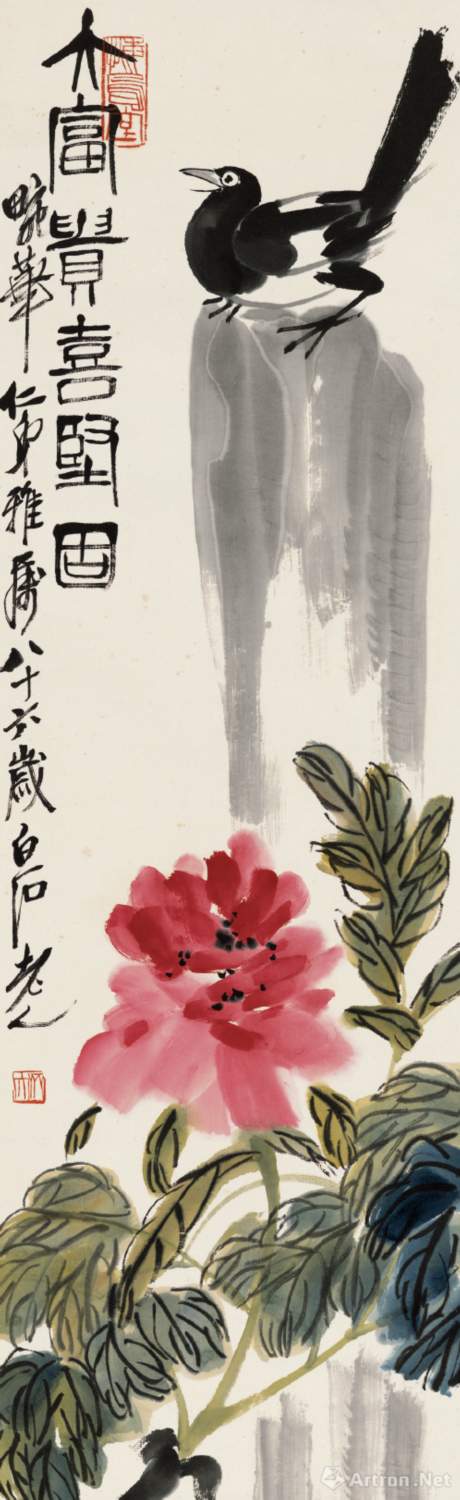 大富貴喜堅固
畹華仁弟雅屬八十六歲白石老人
Artron.Net